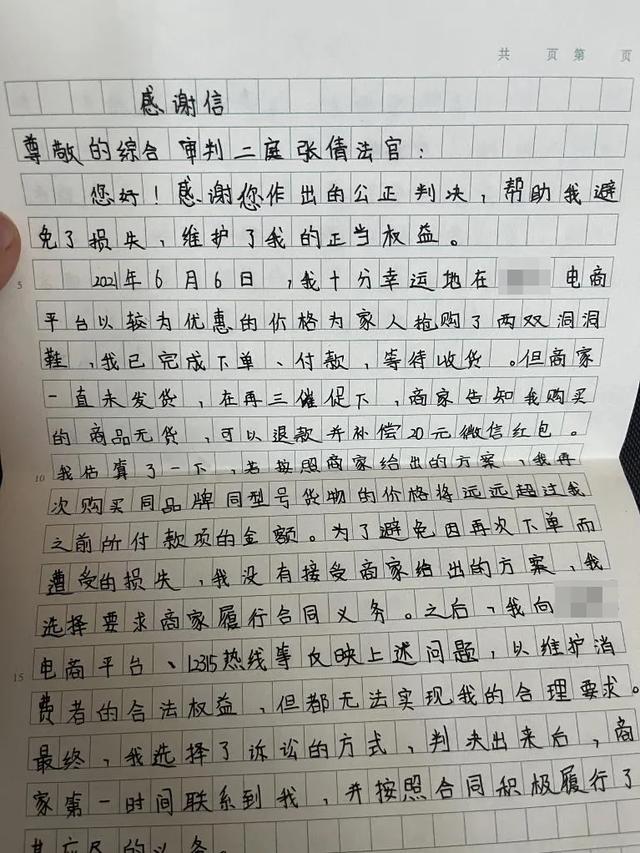 共 页 第 页
感谢信
尊敬的综合审判二庭张倩法官：
您好！感谢您作出的公正判决，帮助我避
免了损失，维护了我的正当权益。
5 2021年6月6日，我十分幸运地在 电商
平台以较为优惠的价格为家人抢购了两双洞洞
鞋，我已完成下单、付款，等待收货。但商家
一直未发货，在再三催促下，商家告知我购买
的商品无货，可以退款并补偿20元微信红包。
10 我估算了一下，若按照商家给出的方案，我再
次购买同品牌同型号货物的价格将远远超过我
之前所付款项的金额。为了避免因再次下单而
遭受的损失，我没有接受商家给出的方案，我
选择要求商家履行合同义务。之后，我向
15 电商平台、12315热线等反映上述问题，以维护消
费者的合法权益，但都无法实现我的合理要求。
最终，我选择了诉讼的方式，判决出来后，商
家第一时间联系到我，并按照合同积极履行了
其应尽的义务。